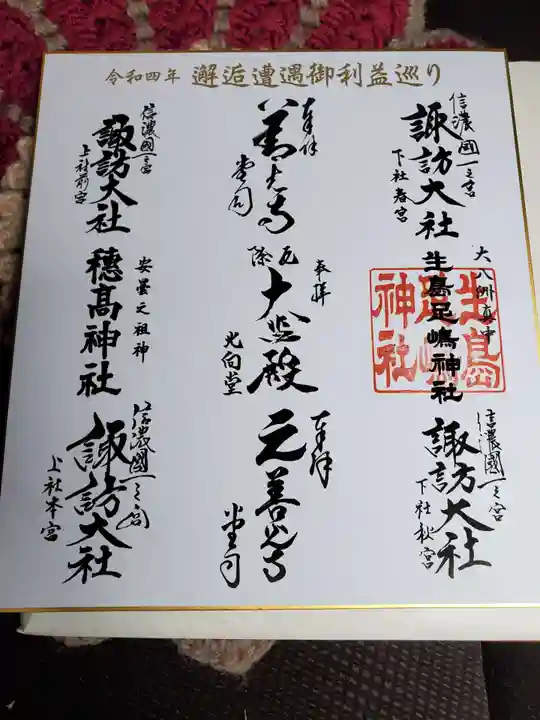 令和四年 邂逅遭遇御利益巡り
信濃國一之宮
諏訪大社
下社春宮
大八洲真中
生島足嶋神社
生島足嶋神社
信濃國一之宮
諏訪大社
下社秋宮
奉拝
善光寺
堂司
奉拝
大悲殿
北向堂
奉拝
元善光寺
堂司
信濃國一之宮
諏訪大社
上社前宮
安曇之祖神
穂高神社
信濃國一之宮
諏訪大社
上社本宮